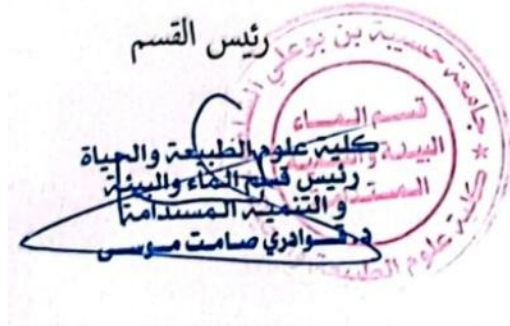 رئيس القسم
كلية علوم الطبيعة والحياة
رئيس قسم الماء والبيئة
و التنمية المستدامة
د. قوادري صامت موسى
جامعة حسيبة بن بوعلي
قسم الماء
البيئة و
المستدامة
كلية علوم الطبيعة